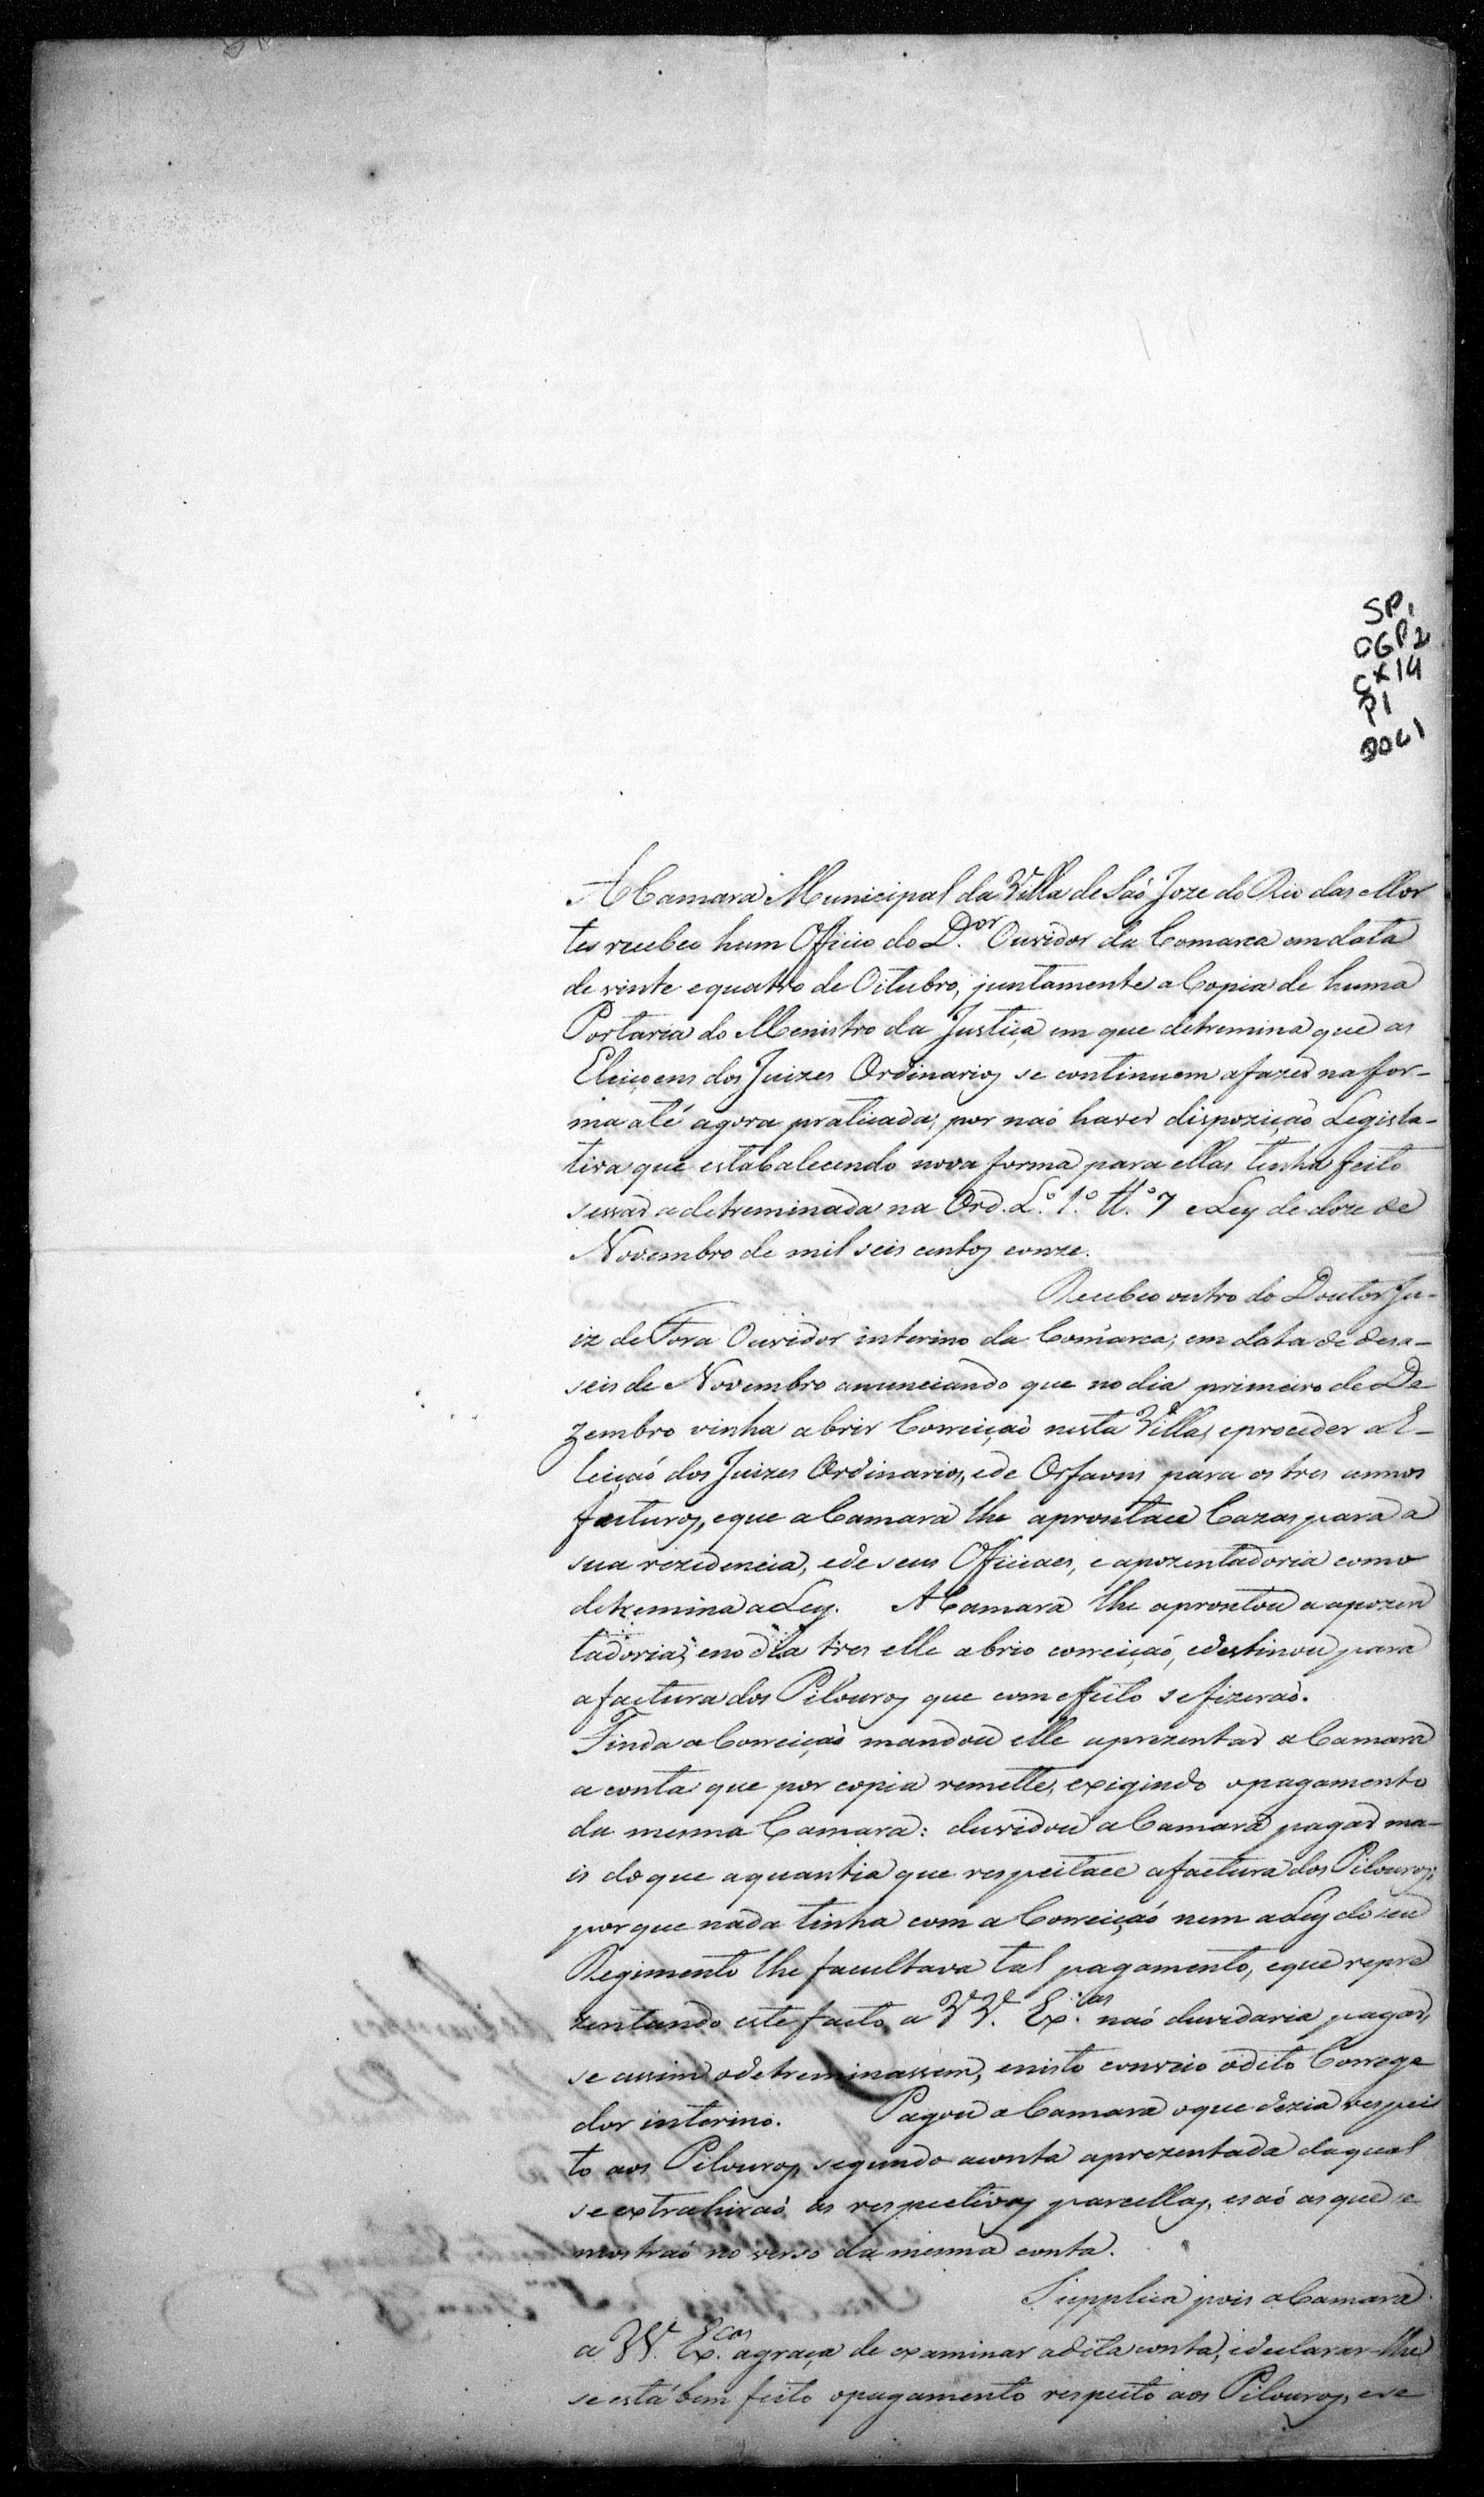 SP1
OGP2
CX14
P1
DOC1
A Camara Municipal da Villa de Saõ Joze do Rio das Mor
tes recebeo hum Officio do D.or Ouvidor da Comarca em data
de vinte e quatro de Oitubro, juntamente a Copia de huma
Portaria do Menistro da Justiça em que detremina que as
Eleiçoens dos Juizes Ordinarios se continuem a fazer na for-
ma até agora praticada, por naõ haver dispoziçaõ Legisla-
tiva que estabalecendo nova forma para ellas tenha feito
sessar a detreminada na Ord. L.º 1.º tt.º 7 e Ley de doze de
Novembro de mil seis centos e onze.
Recebeo outro do Doutor Ju-
iz de Fora Ouvidor interino da Comarca, em data de desa-
seis de Novembro anunciando que no dia primeiro de De
zembro vinha abrir Correiçaõ nesta Villa, e proceder a E-
leiçaõ dos Juizes Ordinarios, e de Orfaons para os tres annos
futuros, e que a Camara lhe aprontace Cazas para a
sua rezidencia, e de seus Officiaes, e apozentadoria como
detremina a Ley. A Camara lhe aprontou a apozen
tadoria, e no dia tres elle abrio correiçaõ, e destinou para
a factura dos Pilouros que com effeito se fizeraõ.
Finda a Correiçaõ mandou elle aprezentar a Camara
a conta que por copia remette, exigindo o pagamento
da mesma Camara: duvidou a Camara pagar ma-
is do que a quantia que respeitace a factura dos Pilouros;
por que nada tinha com a Correiçaõ nem a Ley do seu
Regimento lhe facultava tal pagamento, e que repre
zentando este facto a VV. Ex.cias naõ duvidaria pagar,
se assim o detreminassem, e nisto conveio o dito Correge
dor interino. Pagou a Camara o que dezia respei
to aos Pilouros segundo a conta aprezentada da qual
se extrahiraõ as respectivas parcellas, e saõ as que se
mostraõ no verso da mesma conta.
Supplica pois a Camara
a VV. Ex.cas a graça de examinar a dita conta, e declarar-lhe
se está bem feito o pagamento respeito aos Pilouros, e se